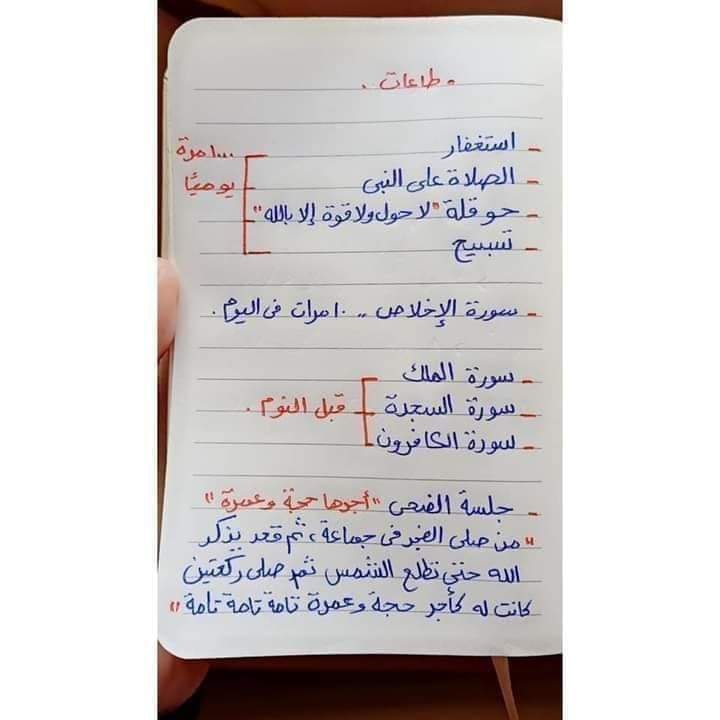 . طاعات .
- استغفار
- الصلاة على النبى
- حوقلة "لا حول ولا قوة إلا بالله"
- تسبيح
١٠٠٠ مرة
يوميًا
- سورة الإخلاص .. ١٠ مرات فى اليوم .
- سورة الملك
- سورة السجدة
- سورة الكافرون
قبل النوم .
- جلسة الضحى "أجرها حجة وعمرة"
"من صلى الفجر فى جماعة، ثم قعد يذكر
الله حتى تطلع الشمس ثم صلى ركعتين
كانت له كأجر حجة وعمرة تامة تامة تامة"